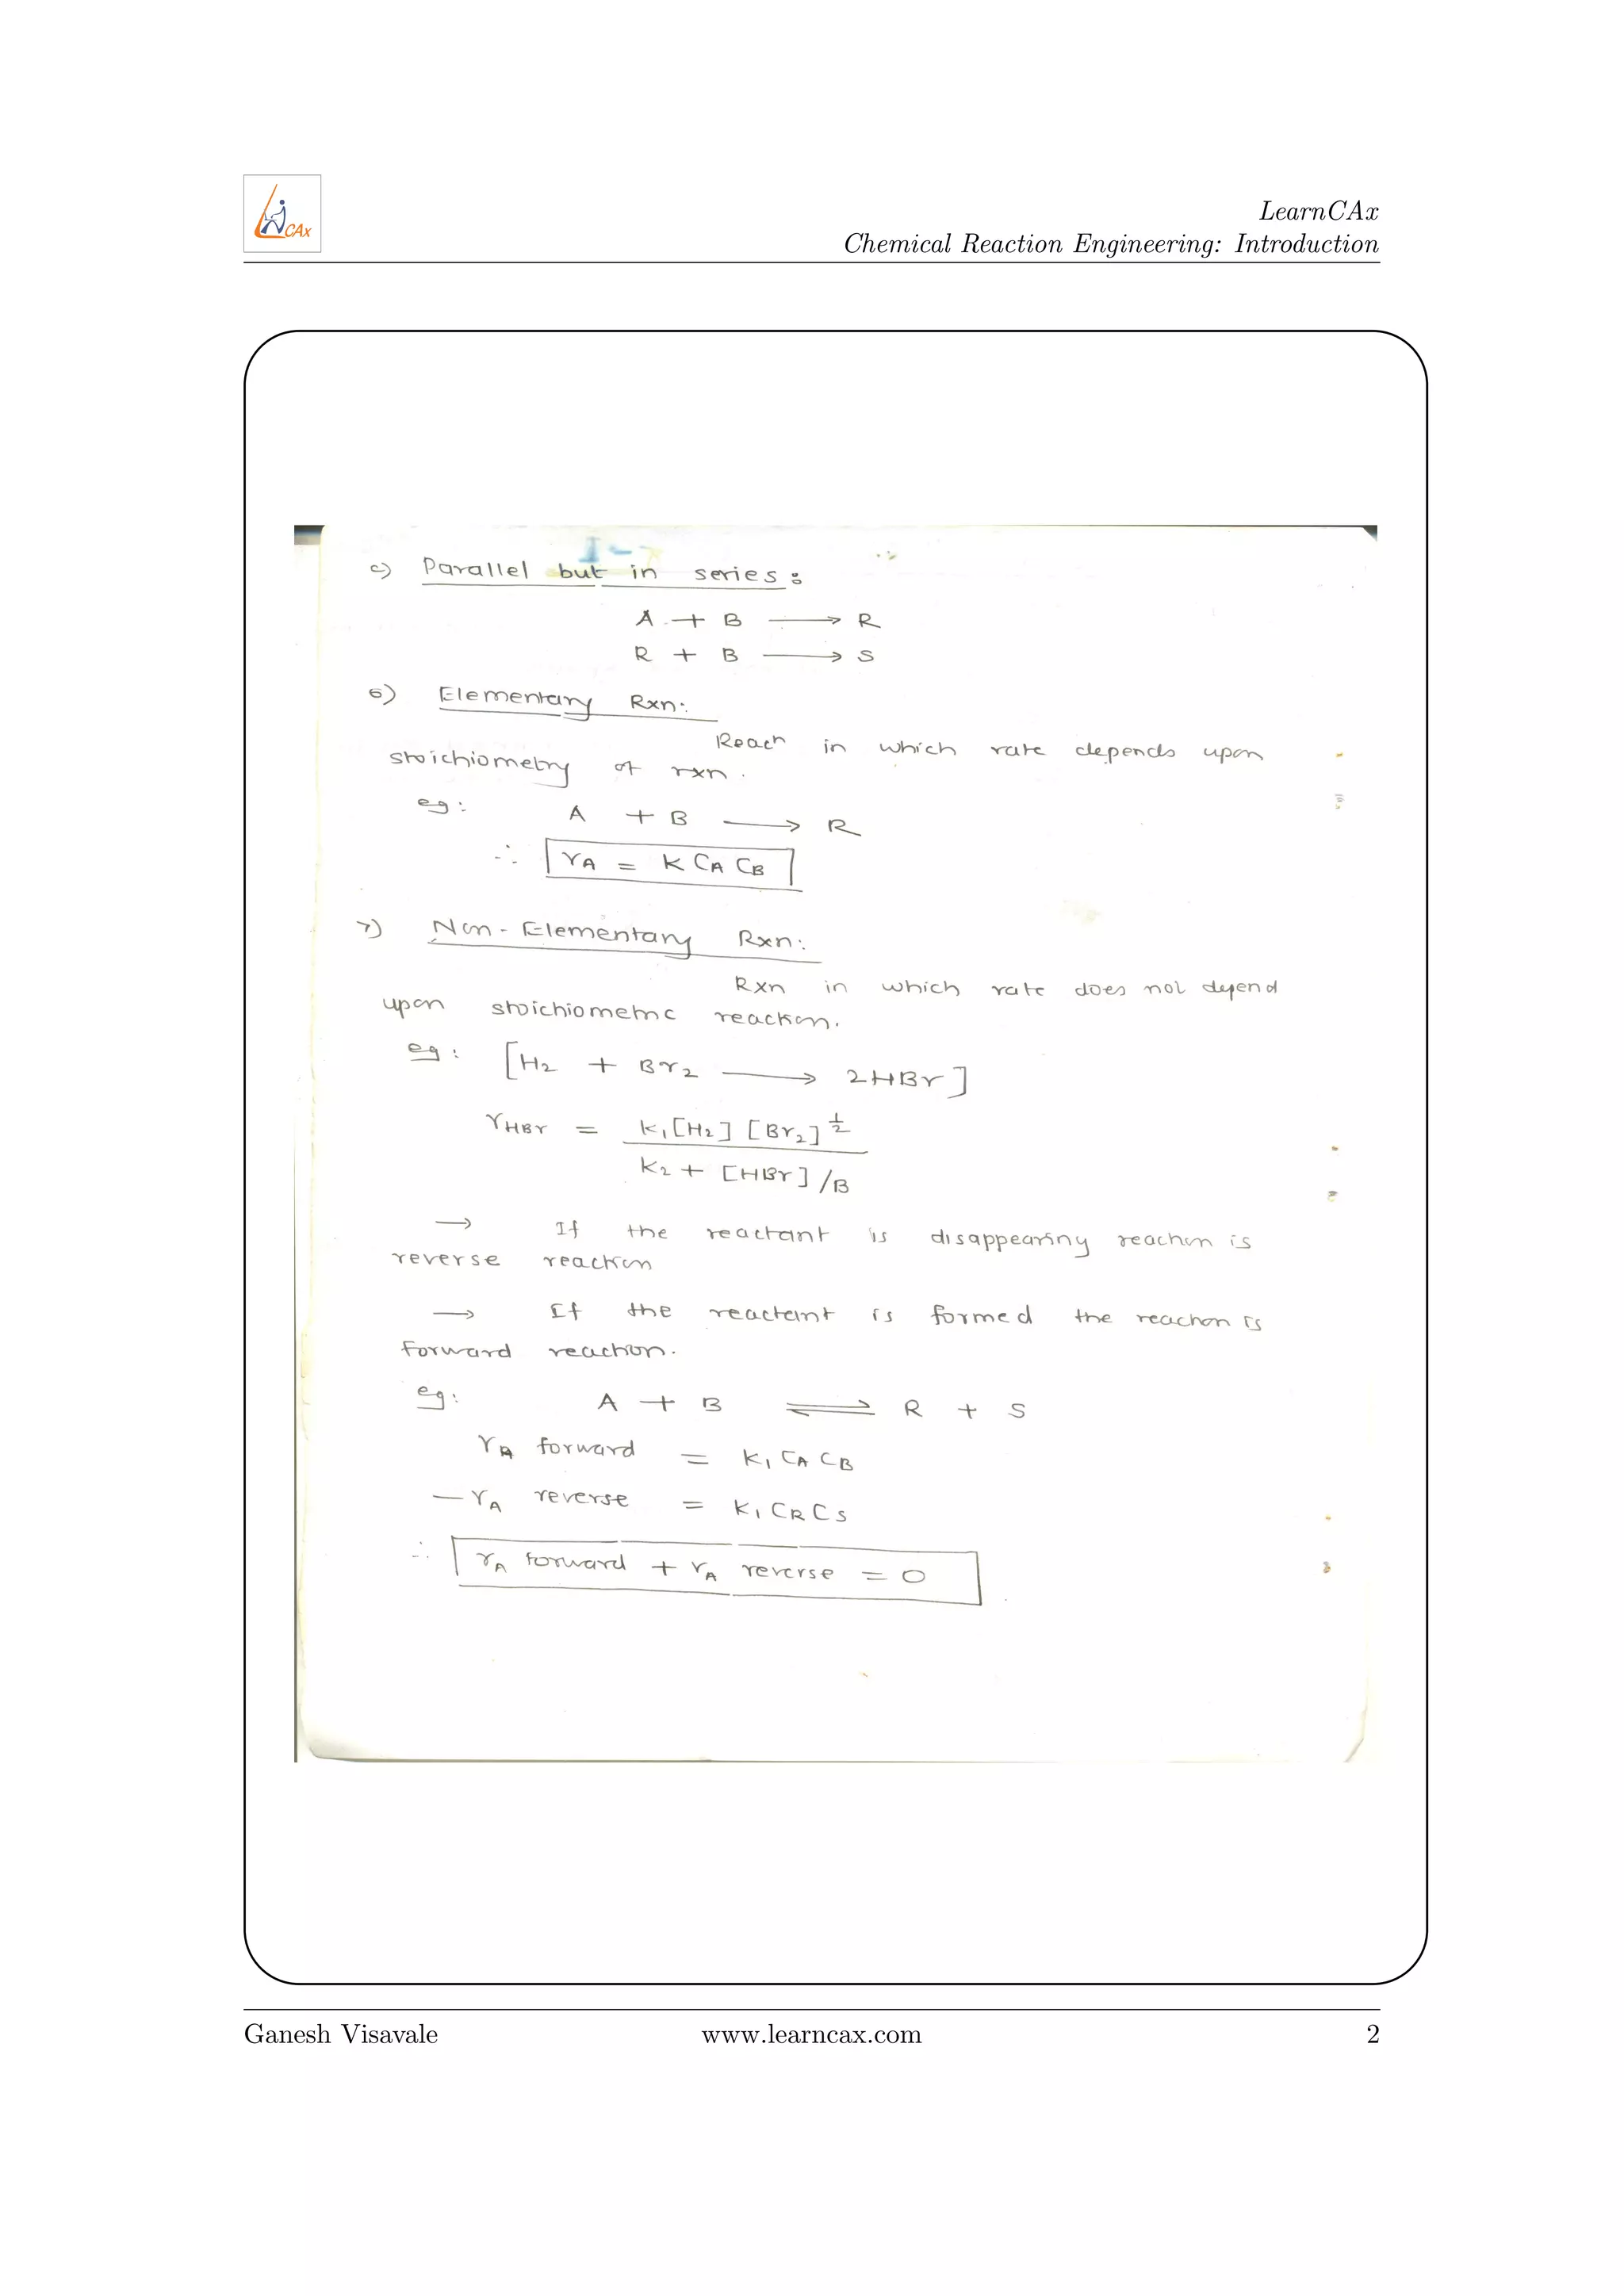 CAx
LearnCAx
Chemical Reaction Engineering: Introduction
c) Parallel but in series :
A + B ⟶ R
R + B ⟶ S
6) Elementary Rxn:
Reacn in which rate depends upon
stoichiometry of rxn.
eg: A + B ⟶ R
∴ rA = K CA CB
7) Non-Elementary Rxn:
Rxn in which rate does not depend
upon stoichiometric reaction.
eg: [H2 + Br2 ⟶ 2HBr]
rHBr = K1[H2] [Br2]^1/2
K2 + [HBr]/B
→ If the reactant is disappearing reaction is
reverse reaction
→ If the reactant is formed the reaction is
forward reaction.
eg: A + B ⇌ R + S
rA forward = K1 CA CB
-rA reverse = K1 CR CS
∴ rA forward + rA reverse = 0
Ganesh Visavale www.learncax.com 2